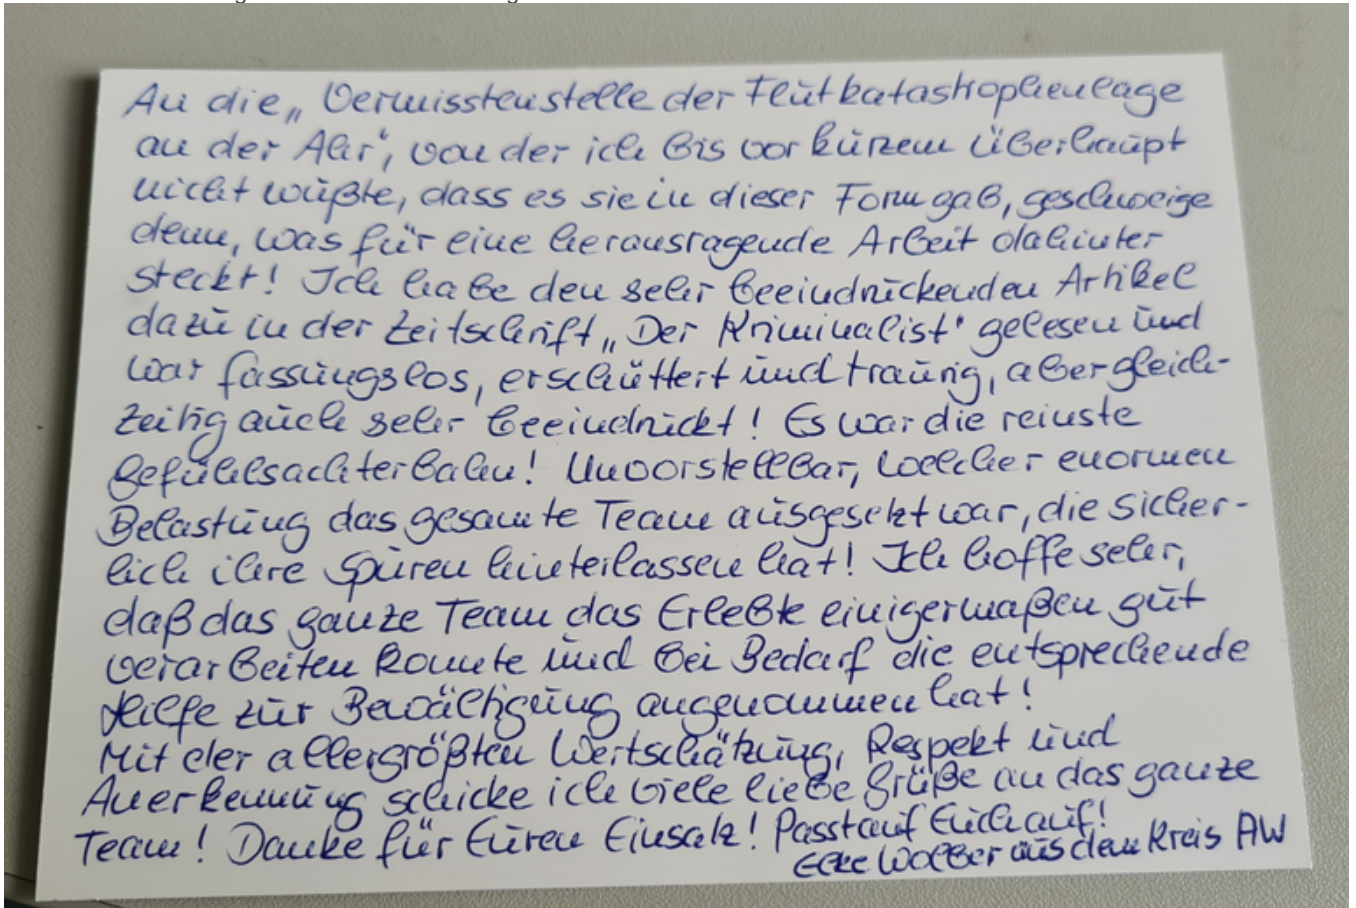 An die „Vermisstenstelle der Flutkatastrophenlage
an der Ahr“, von der ich bis vor kurzem überhaupt
nicht wußte, dass es sie in dieser Form gab, geschweige
denn, was für eine herausragende Arbeit dahinter
steckt! Ich habe den sehr beeindruckenden Artikel
dazu in der Zeitschrift „Der Kriminalist“ gelesen und
war fassungslos, erschüttert und traurig, aber gleich-
zeitig auch sehr beeindruckt! Es war die reinste
Gefühlsachterbahn! Unvorstellbar, welcher enormen
Belastung das gesamte Team ausgesetzt war, die sicher-
lich ihre Spuren hinterlassen hat! Ich hoffe sehr,
daß das ganze Team das Erlebte einigermaßen gut
verarbeiten konnte und bei Bedarf die entsprechende
Hilfe zur Bewältigung angenommen hat!
Mit der allergrößten Wertschätzung, Respekt und
Anerkennung schicke ich viele liebe Grüße an das ganze
Team! Danke für Euren Einsatz! Passt auf Euch auf!
Wolber aus dem Kreis AW